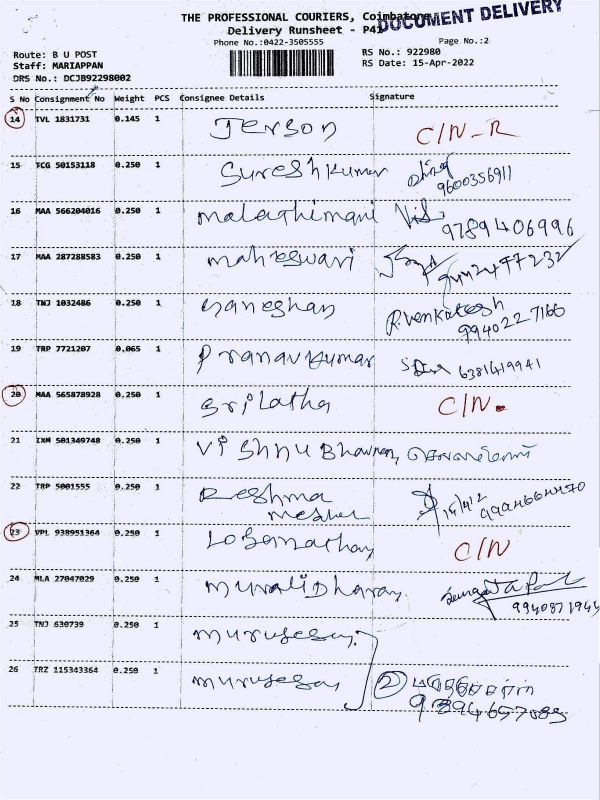 THE PROFESSIONAL COURIERS, Coimbatore
DOCUMENT DELIVERY
Delivery Runsheet - P41
Phone No.:0422-3505555 Page No.:2
Route: B U POST RS No.: 922980
Staff: MARIAPPAN RS Date: 15-Apr-2022
DRS No.: DCJB92298002
S No Consignment No Weight PCS Consignee Details Signature
14 TVL 1831731 0.145 1 Jerson C/N-R
15 TCG 50153118 0.250 1 SureshKumar
9600356911
16 MAA 566204016 0.250 1 malathimani
9789406996
17 MAA 287288583 0.250 1 maheswari
18 TNJ 1032486 0.250 1 Ganeshan R.Venkatesh
9940227166
19 TRP 7721207 0.065 1 PranavKumar 6381419941
20 MAA 565878928 0.250 1 SriLatha C/N.
21 IXM 501349748 0.250 1 Vishnu Bhavnan,
22 TRP 5001555 0.250 1 Reshma
9994664470
23 VPL 938951364 0.250 1 Loganathan C/N
24 MLA 27047029 0.250 1 muraliDharan
9940871944
25 TNJ 630739 0.250 1 murugesan
26 TRZ 115343364 0.250 1 murugesan 2